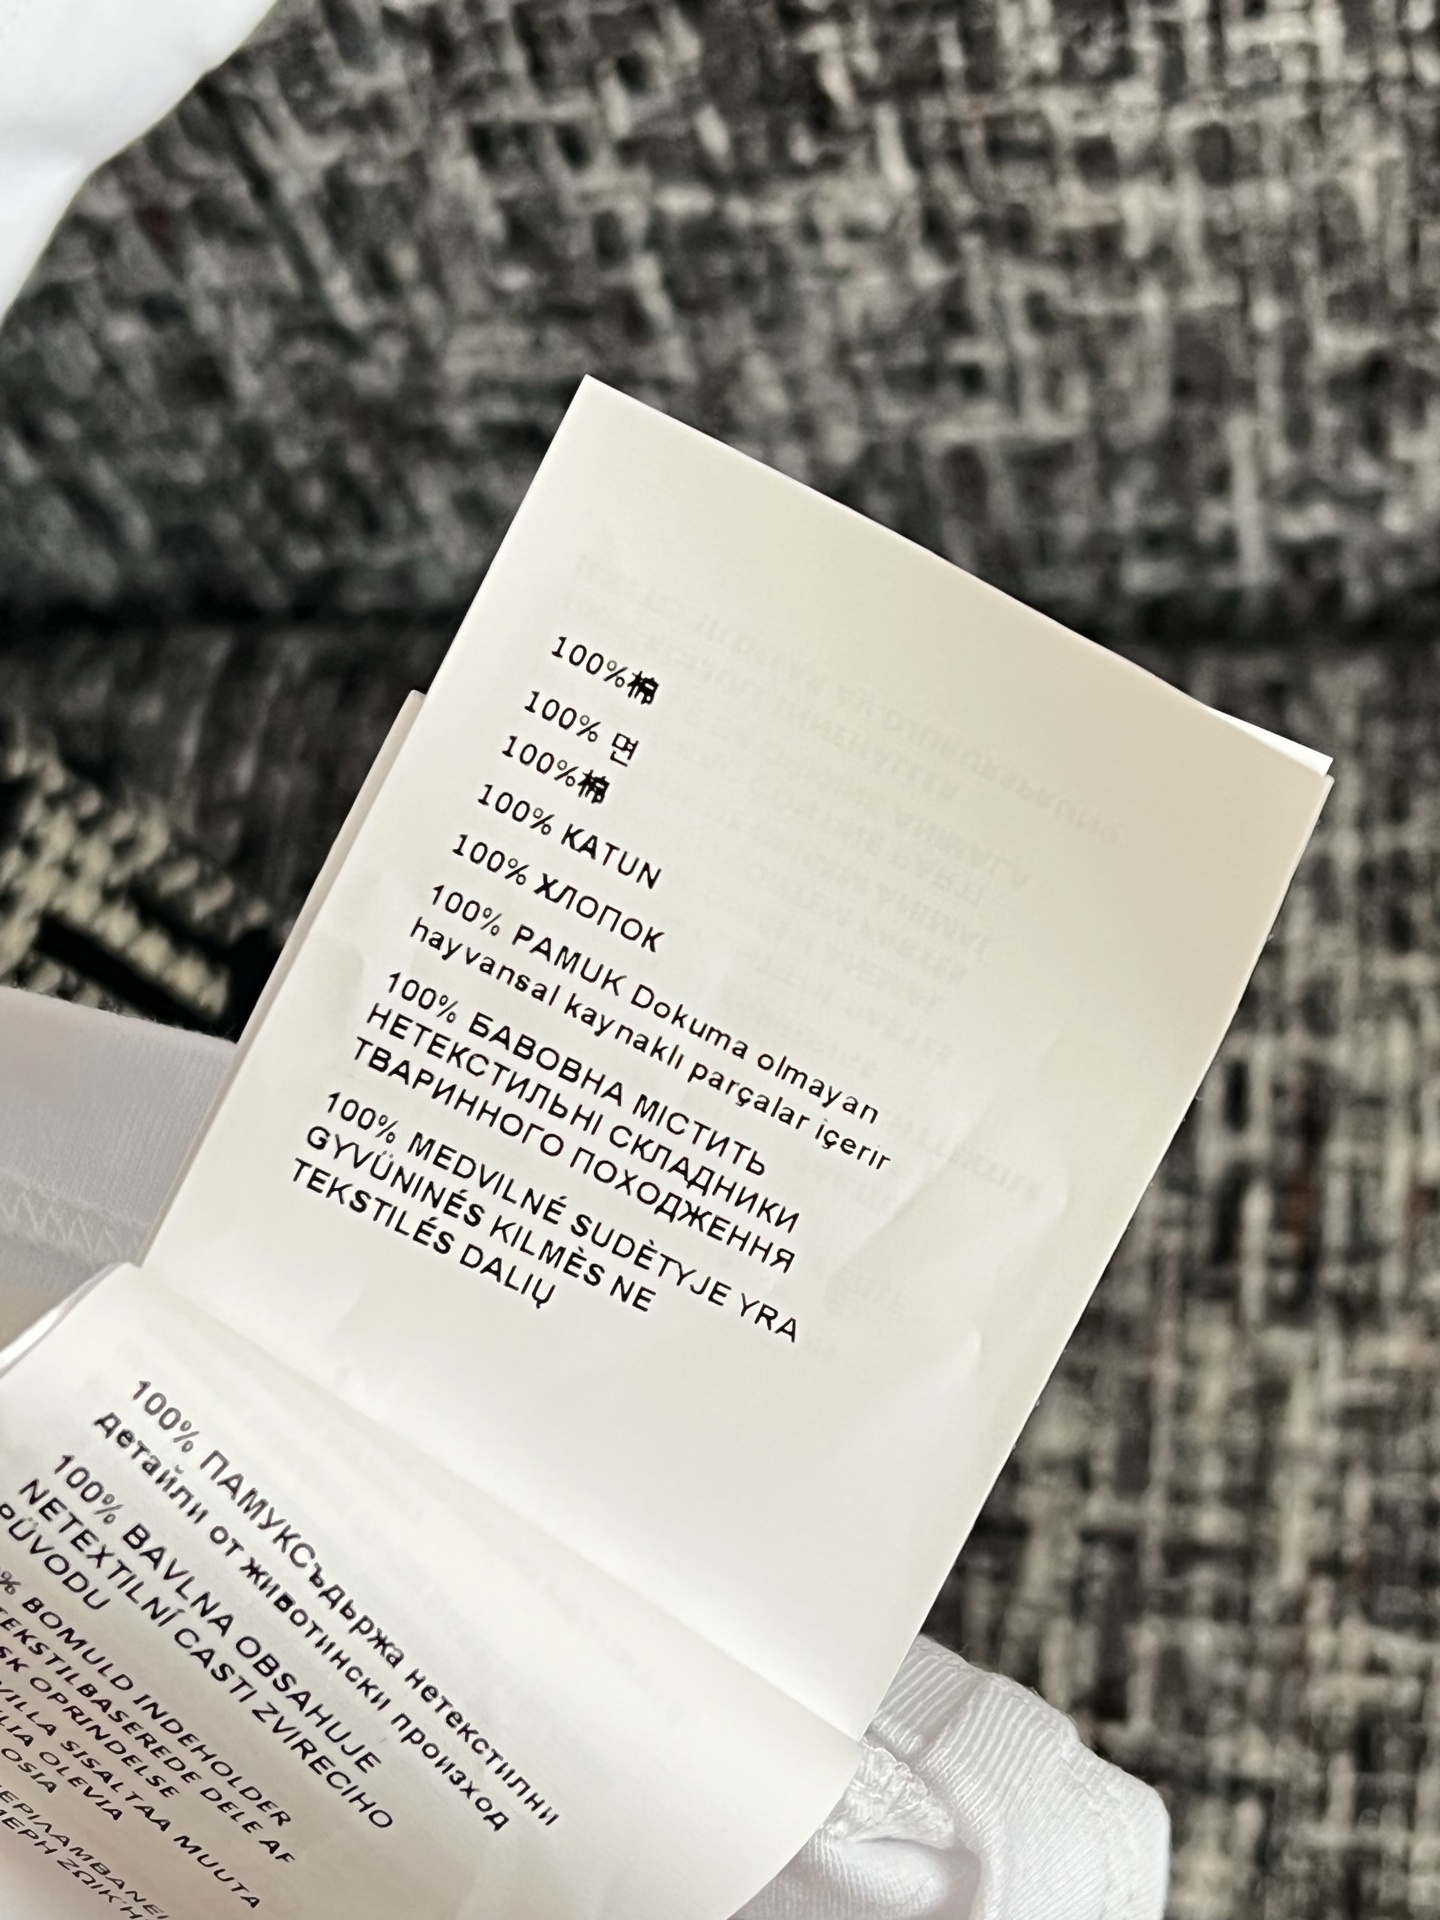 100%棉
100% 면
100%棉
100% KATUN
100% ХЛОПОК
100% PAMUK Dokuma olmayan
hayvansal kaynaklı parçalar içerir
100% БАВОВНА МІСТИТЬ
НЕТЕКСТИЛЬНІ СКЛАДНИКИ
ТВАРИННОГО ПОХОДЖЕННЯ
100% MEDVILNÉ SUDÈTYJE YRA
GYVÜNINÉS KILMÈS NE
TEKSTILÉS DALIŲ
100% ПАМУКСъдържа нетекстилни
детайли от животински произход
100% BAVLNA OBSAHUJE
NETEXTILNÍ CASTI ZVIRECIHO
PÜVODU
% BOMULD INDEHOLDER
TEKSTILBASEREDE DELE AF
SK OPRINDELSE
VILLA SISALTAA MUUTA
LIA OLEVIA
OSIA